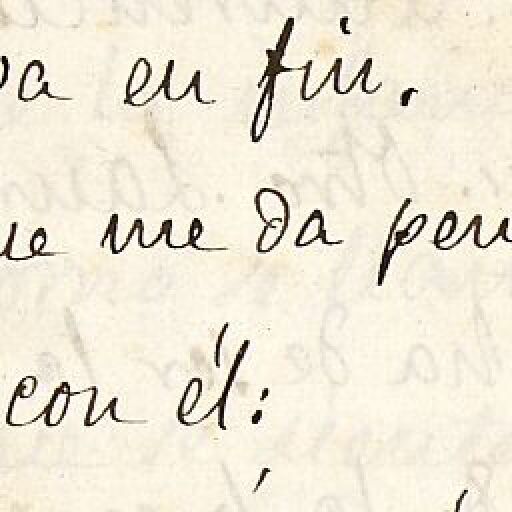 va en fin.
ue me da pen
con él: